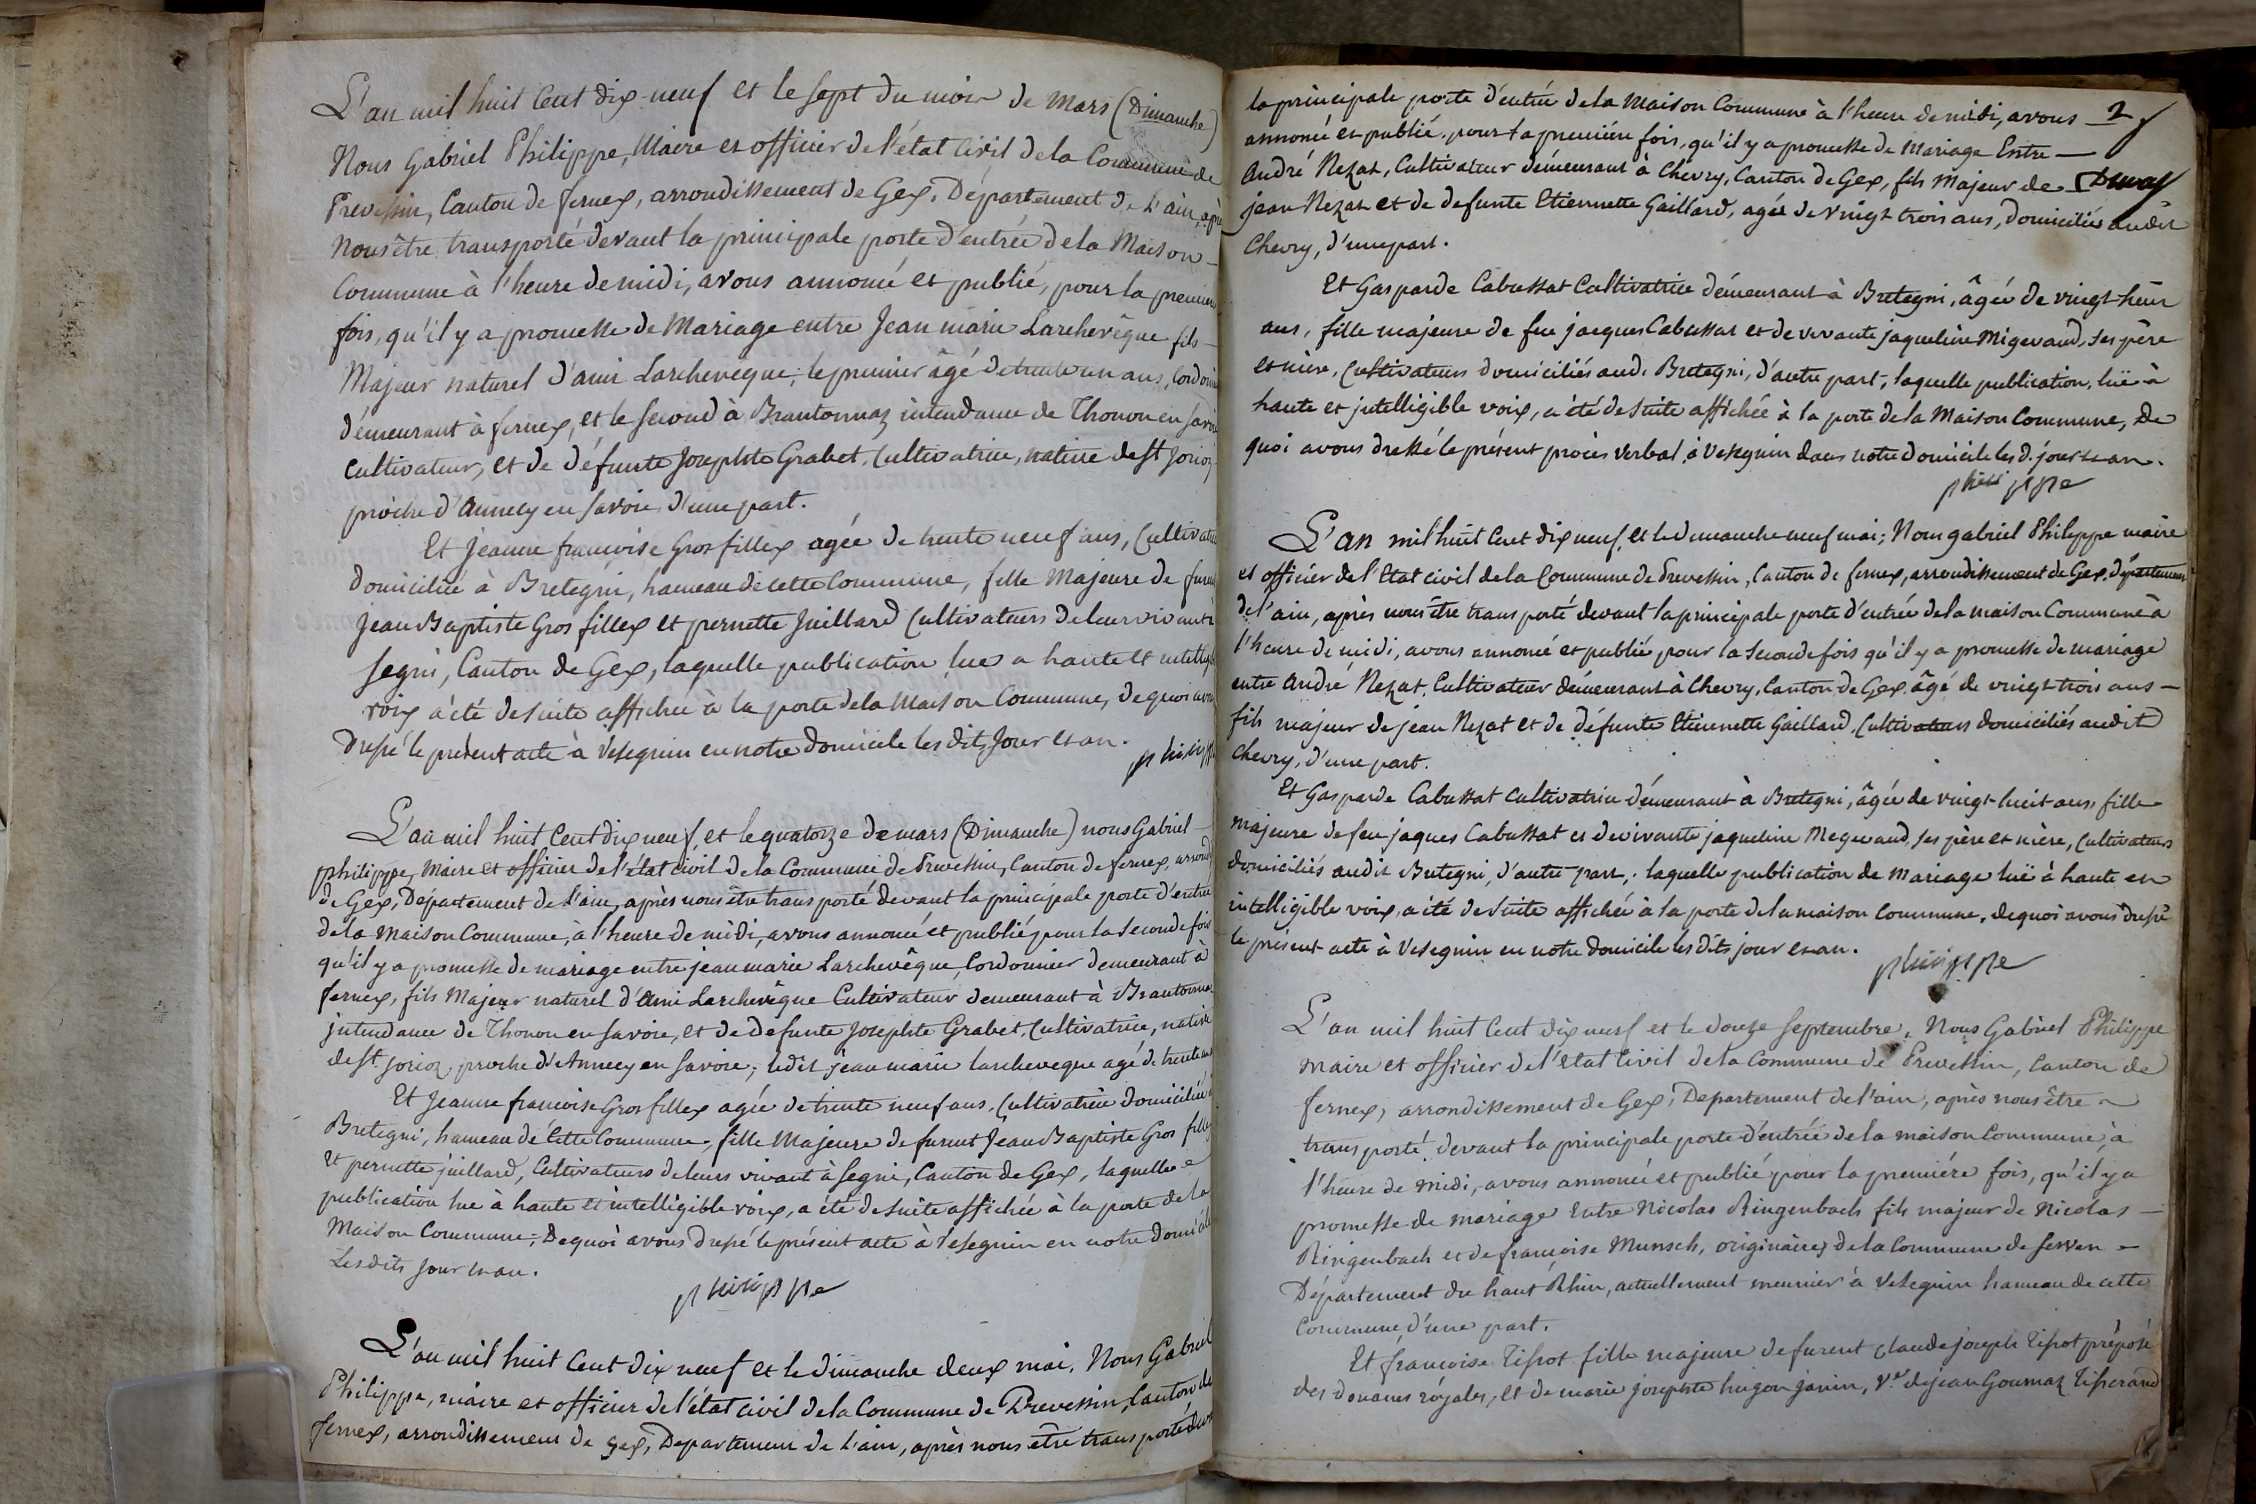 L'an mil huit Cent dix neuf et le Sept du mois de Mars (Dimanche)
Nous Gabriel Philippe, Maire et officier de l'état Civil de la Commune de
Prevessin, Canton de fernex, arrondissement de Gex, Département de L'ain, après
Nous être transporté devant la principale porte d'entrée de la Maison –
Commune à l'heure de midi, avons annoncé et publié, pour la premiere
fois, qu'il y a promesse de Mariage entre Jean marie Larchevêque fils –
Majeur naturel d'ami Larcheveque, le premier âgé de trente un ans, Cordonnier
démeurant à fernex, et le second à Brantonnaz intendance de Thonon en Savoie
Cultivateur, et de défunte Josephte Grabet, Cultivatrice, native de St Jorioz,
proche d'Annecy en Savoie, d'une part.
Et Jeanne françoise Gros fillex agée de trente neuf ans, Cultivatrice
domiciliée à Bretegni, hameau de cette Commune, fille Majeure de furent
Jean Baptiste Gros fillex et pernette Juillard Cultivateurs de leur vivant à
Segni, Canton de Gex, laquelle publication lue a haute et intelligible
voix a été de suite affichée à la porte de la Maison Commune, de quoi avons
dressé le présent acte à Vesegnin en notre domicile les dits Jour et an.
philippe
L'an mil huit Cent dix neuf, et le quatorze de mars (Dimanche) nous Gabriel –
philippe, Maire et officier de l'état Civil de la Commune de Prevessin, Canton de fernex, arrond
de Gex, Département de L'ain, après nous être transporté devant la principale porte d'entrée
de la Maison Commune, à l'heure de midi, avons annoncé et publié pour la seconde fois
qu'il y a promesse de mariage entre jean marie Larchevêque, Cordonnier demeurant à
fernex, fils Majeur naturel d'Ami Larchevêque Cultivateur demeurant à Brantonnaz
jntendance de Thonon en Savoie, et de defunte Josephte Grabet, Cultivatrice, native
de St jorioz, proche d'Annecy en Savoie; ledit jean marie larcheveque agé de trente un
Et Jeanne francoise Gros fillex agée de trente neuf ans, Cultivatrice domiciliée à
Bretegni, hameau de Cette Commune, fille Majeure de furent Jean Baptiste Gros fillex
et pernette juillard, Cultivateurs de leurs vivant à Segni, Canton de Gex, laquelle
publication lue à haute et intelligible voix, a été de suite affichée à la porte de la
Maison Commune, De quoi avons dressé le présent acte à Vesegnin en notre domicile
Lesdits jour et an.
philippe
L'an mil huit Cent dix neuf et le dimanche deux mai. Nous Gabriel
Philippe, maire et officier de l'état civil de la Commune de Prevessin, Canton de
fernex, arrondissement de Gex, Departement de L'ain, après nous être transporté devant
2
la principale porte d'entrée de la Maison Commune à l'heure de midi, avons
annoncé et publié, pour la premiére fois, qu'il y a promesse de Mariage Entre –
André Nezat, Cultivateur demeurant à Chévry, Canton de Gex, fils Majeur de
jean Nezat et de defunte Etiennette Gaillard, agée de vingt trois ans, Domiciliés audit
Chevry, d'une part.
Et Gasparde Cabussat Cultivatrice démeurant à Bretegni, âgée de vingt-huit
ans, fille majeure de feu jacques Cabussat et de vivante jaqueline Migevaud, ses père
et mère, Cultivateurs domiciliés aud. Bretegni, d'autre part, laquelle publication, luë à
haute et jntelligible voix, a été de suite affichée à la porte de la Maison Commune, de
quoi avons dressé le présent procès verbal, à Vesegnin dans notre domicile les d. jour et an.
philippe
L'an mil huit Cent dix neuf, et le dimanche neuf mai; Nous gabriel Philippe maire
et officier de l'Etat civil de la Commune de Prevessin, Canton de fernex, arrondissement de Gex, département
de l'ain, après nous être transporté devant la principale porte d'entrée de la maison Commune à
l'heure de midi, avons annoncé et publié pour la seconde fois qu'il y a promesse de mariage
entre André Nezat, Cultivateur démeurant à Chevry, Canton de Gex, âgé de vingt-trois ans –
fils majeur de jean Nezat et de défunte Etiennette Gaillard, Cultivateurs domiciliés audit
Chevry, d'une part.
Et Gasparde Cabussat Cultivatrice démeurant à Bretegni, âgée de vingt-huit ans, fille
majeure de feu jaques Cabussat et de vivante jaqueline Megevaud, ses père et mère, Cultivateurs
domiciliés audit Bretegni, d'autre part, laquelle publication de Mariage luë à haute en
intelligible voix, a été de suite affichée à la porte de la maison Commune, de quoi avons dressé
le présent acte à Vesegnin en notre domicile les dits jour et an.
philippe
L'an mil huit Cent dix neuf et le douze Septembre, Nous Gabriel Philippe
Maire et officier de l'Etat Civil de la Commune de Prevessin, Canton de
fernex, arrondissement de Gex, Departement de l'ain, après nous être
transporté devant la principale porte d'entrée de la maison Commune, à
l'heure de midi, avons annoncé et publié pour la premiére fois, qu'il y a
promesse de mariage Entre Nicolas Ringenbach fils majeur de Nicolas –
Ringenbach et de françoise Munsch, originaires de la Commune de Serven
Département du haut Rhin, actuellement meunier à Vesegnin hameau de cette
Commune, d'une part.
Et françoise Tissot fille majeure de furent claude joseph Tissot préposé
des douanes royales, et de marie josephte hugon janin, Ve. de jean Goumaz Tisserand